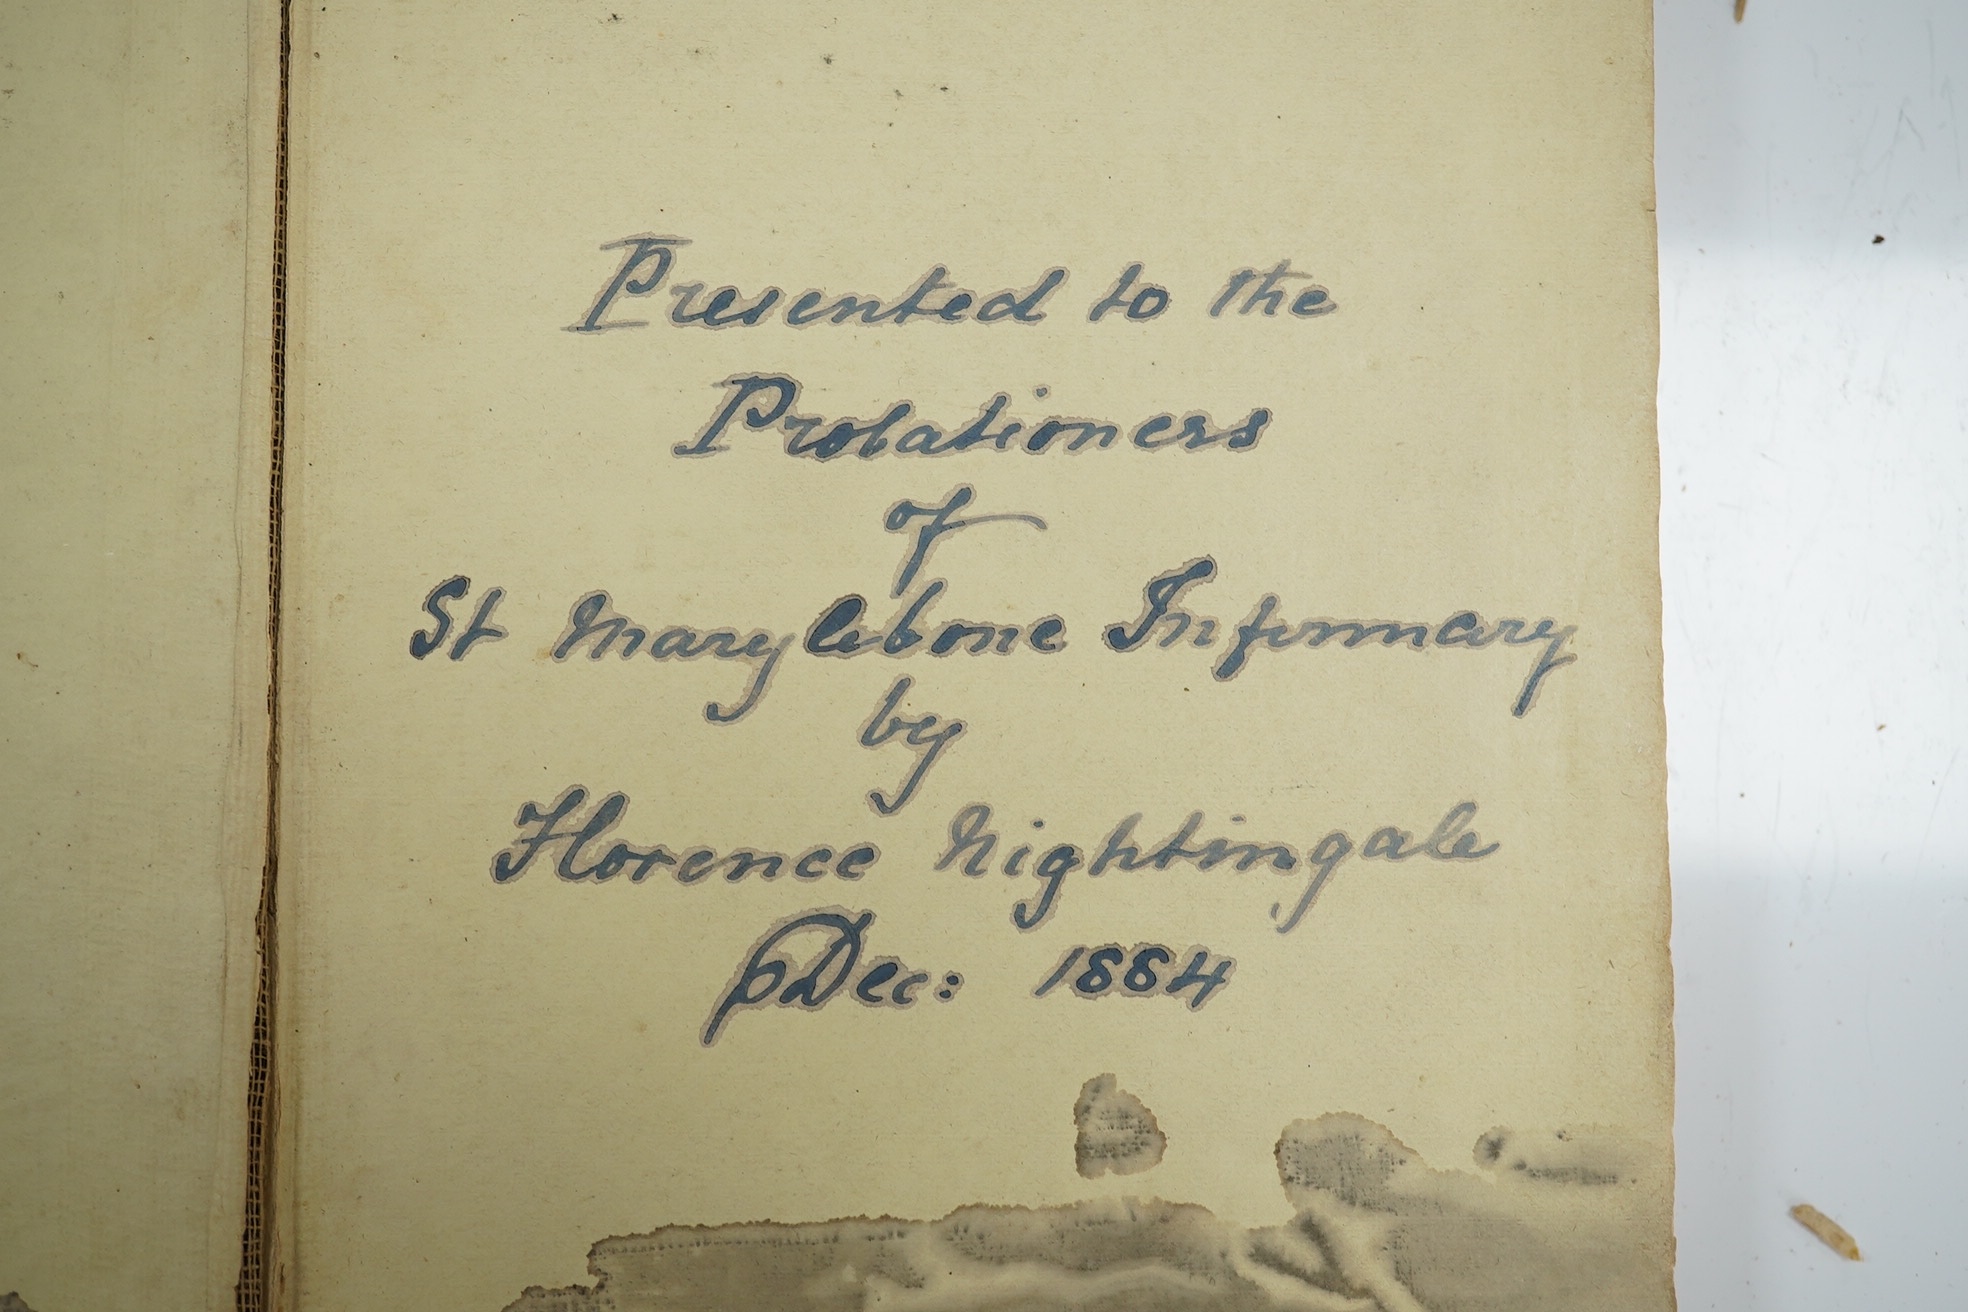 Presented to the
Probationers
of
St Marylebone Infirmary
by
Florence Nightingale
Dec: 1884